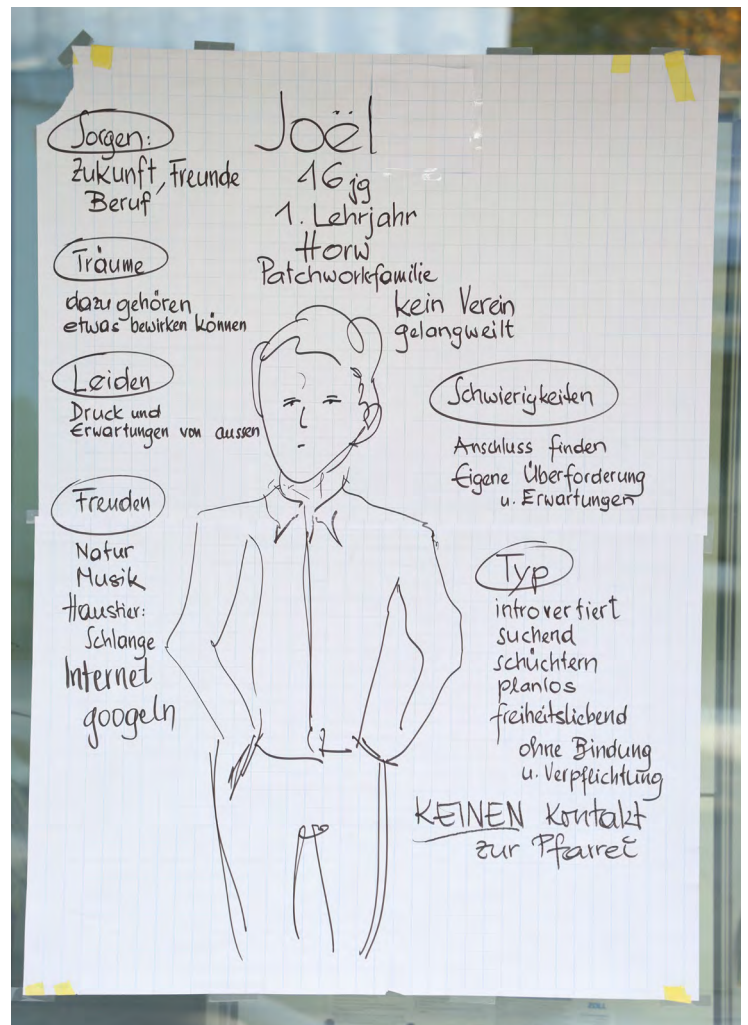 Joël
16 jg
1. Lehrjahr
Horw
Patchworkfamilie
kein Verein
gelangweilt
Sorgen:
Zukunft, Freunde
Beruf
Träume
dazu gehören
etwas bewirken können
Leiden
Druck und
Erwartungen von aussen
Freuden
Natur
Musik
Haustier:
Schlange
Internet
googeln
Schwierigkeiten
Anschluss finden
Eigene Überforderung
u. Erwartungen
Typ
introvertiert
suchend
schüchtern
planlos
freiheitsliebend
ohne Bindung
u. Verpflichtung
KEINEN Kontakt
zur Pfarrei